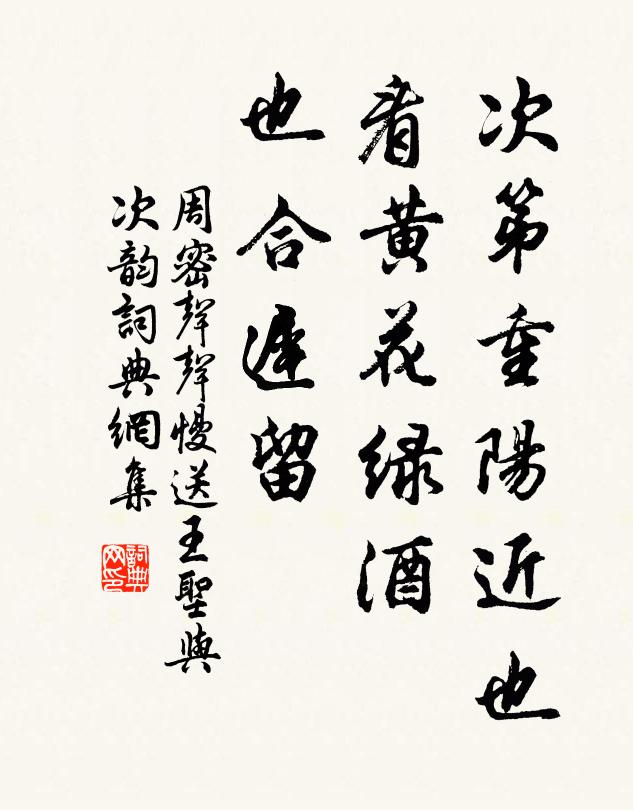 次第重陽近也
看黃花綠酒
也合遲留
周密聲聲慢送王聖與
次韵詞典網集
詞典
网印